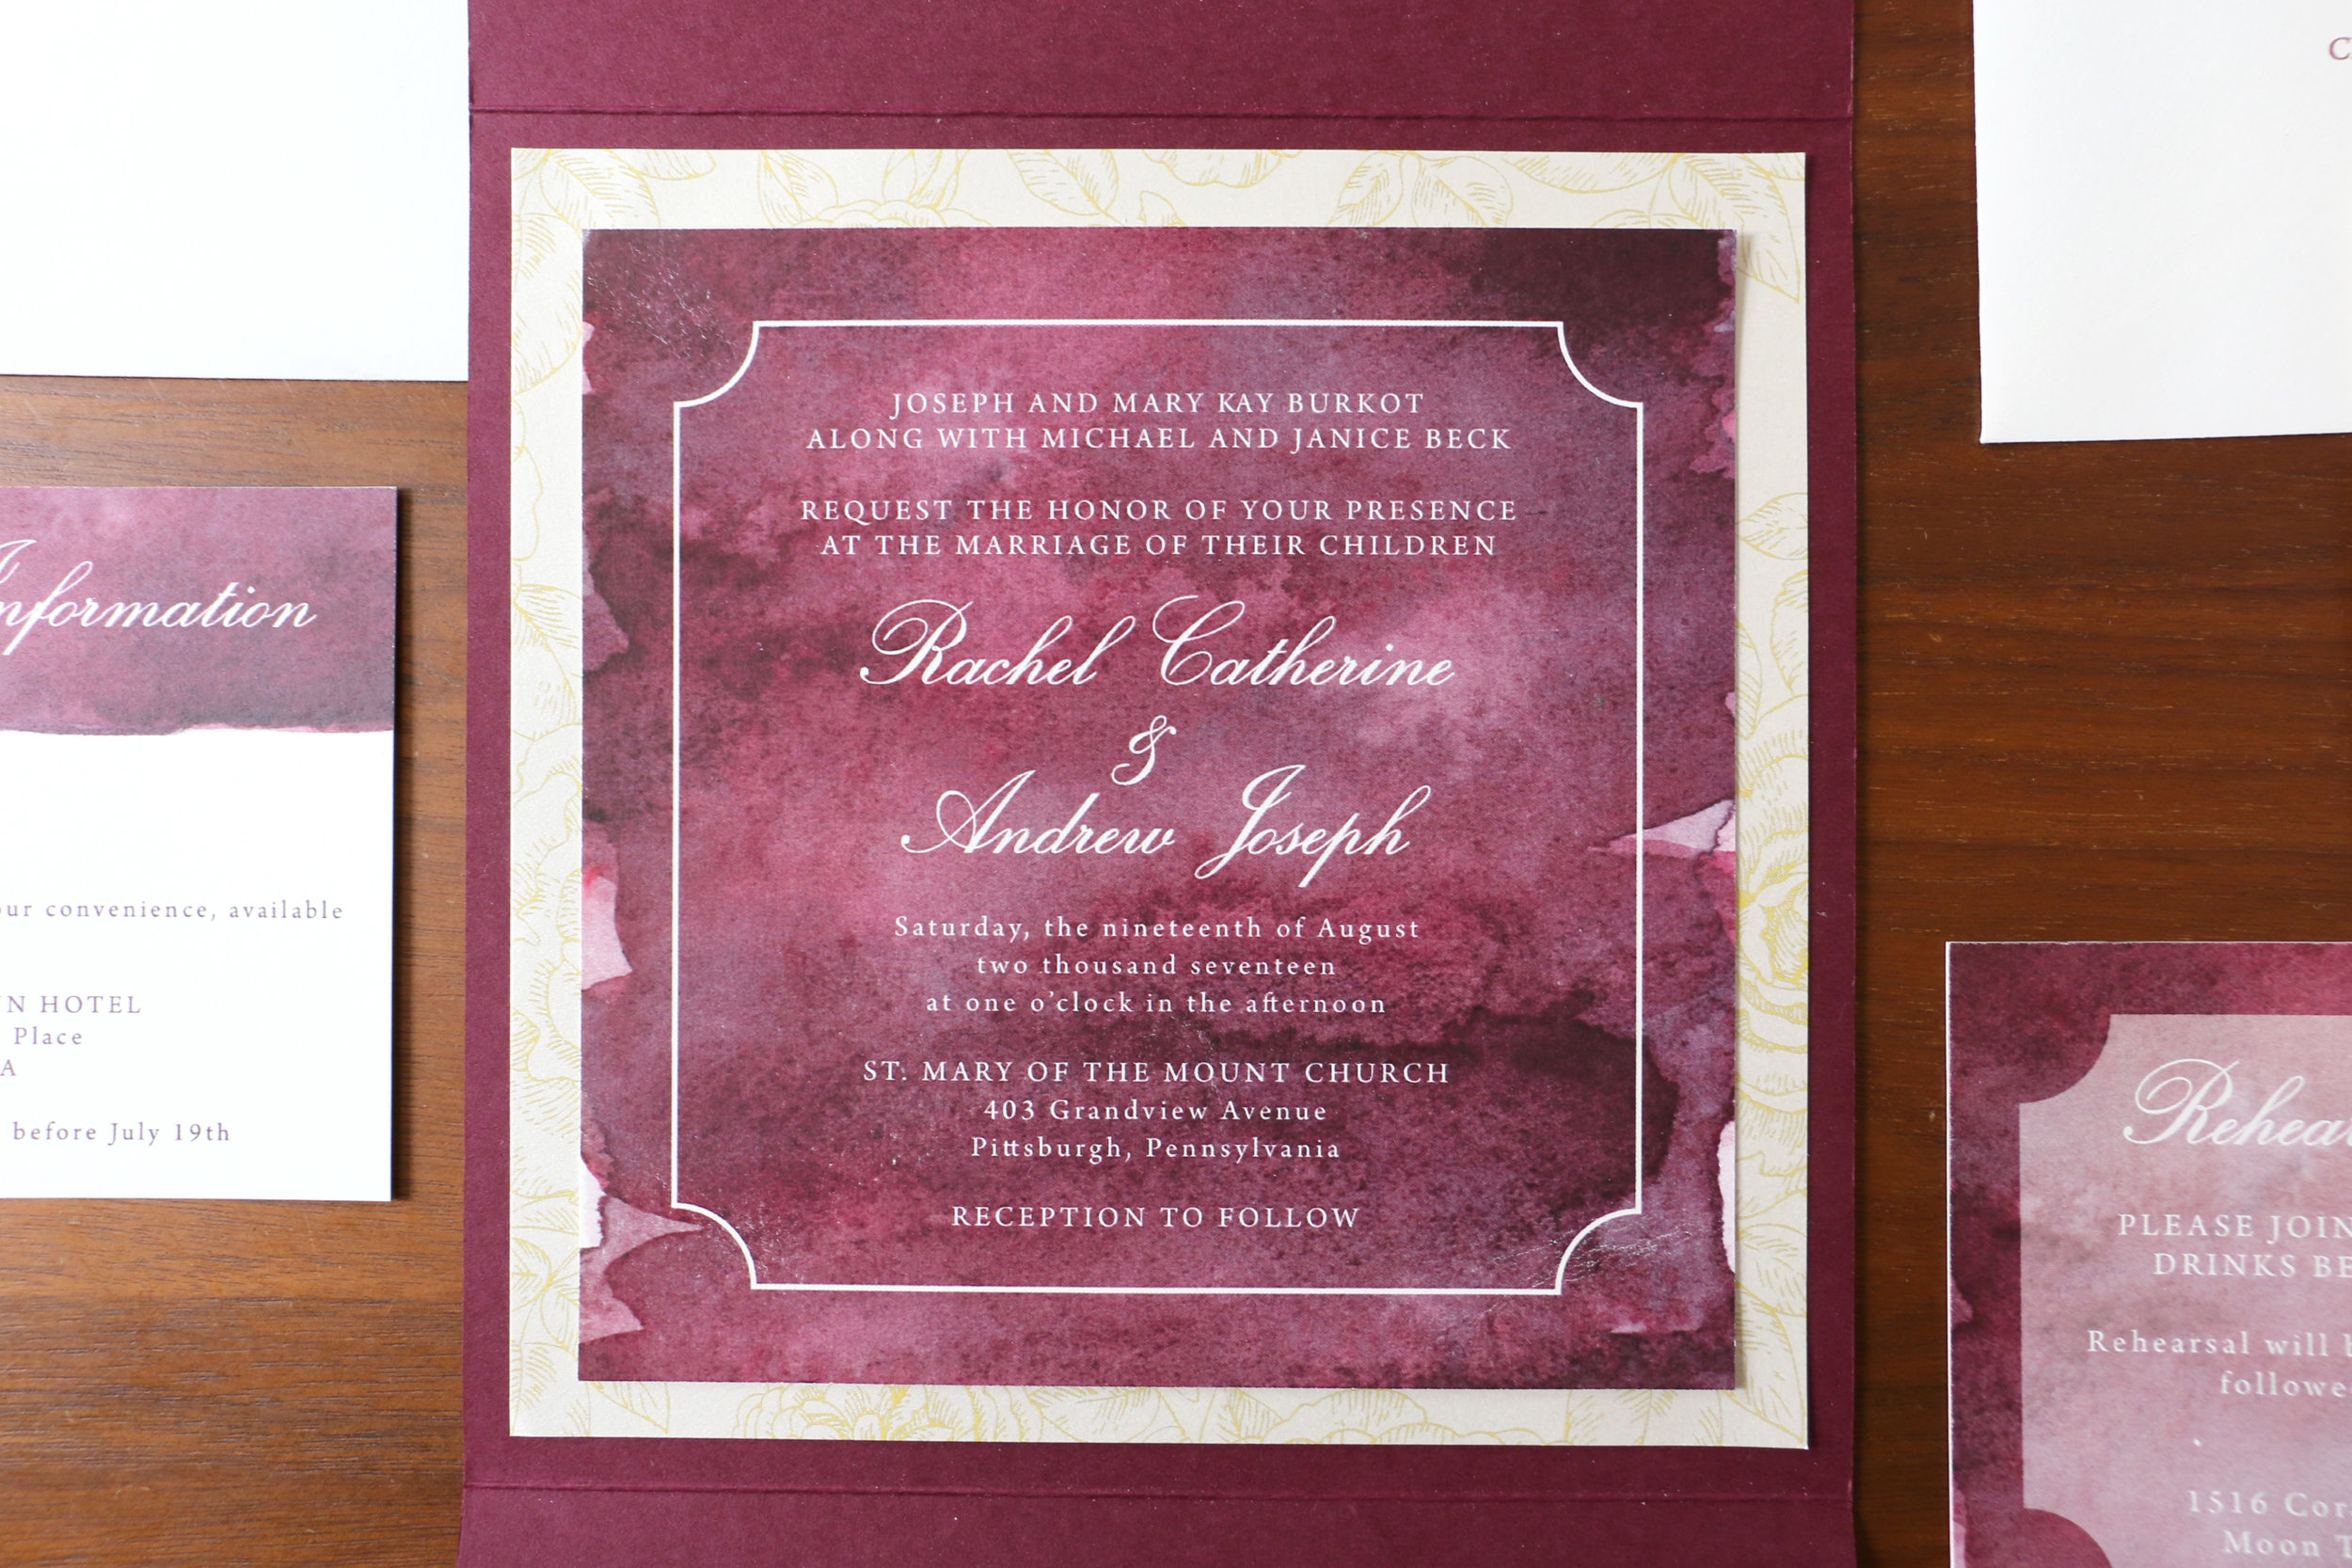 JOSEPH AND MARY KAY BURKOT
ALONG WITH MICHAEL AND JANICE BECK
REQUEST THE HONOR OF YOUR PRESENCE
AT THE MARRIAGE OF THEIR CHILDREN
Rachel Catherine
&
Andrew Joseph
Saturday, the nineteenth of August
two thousand seventeen
at one o'clock in the afternoon
ST. MARY OF THE MOUNT CHURCH
403 Grandview Avenue
Pittsburgh, Pennsylvania
RECEPTION TO FOLLOW
Information
convenience, available
HOTEL
Place
before July 19th
PLEASE JOIN
DRINKS
Rehearsal will
1516
Moon